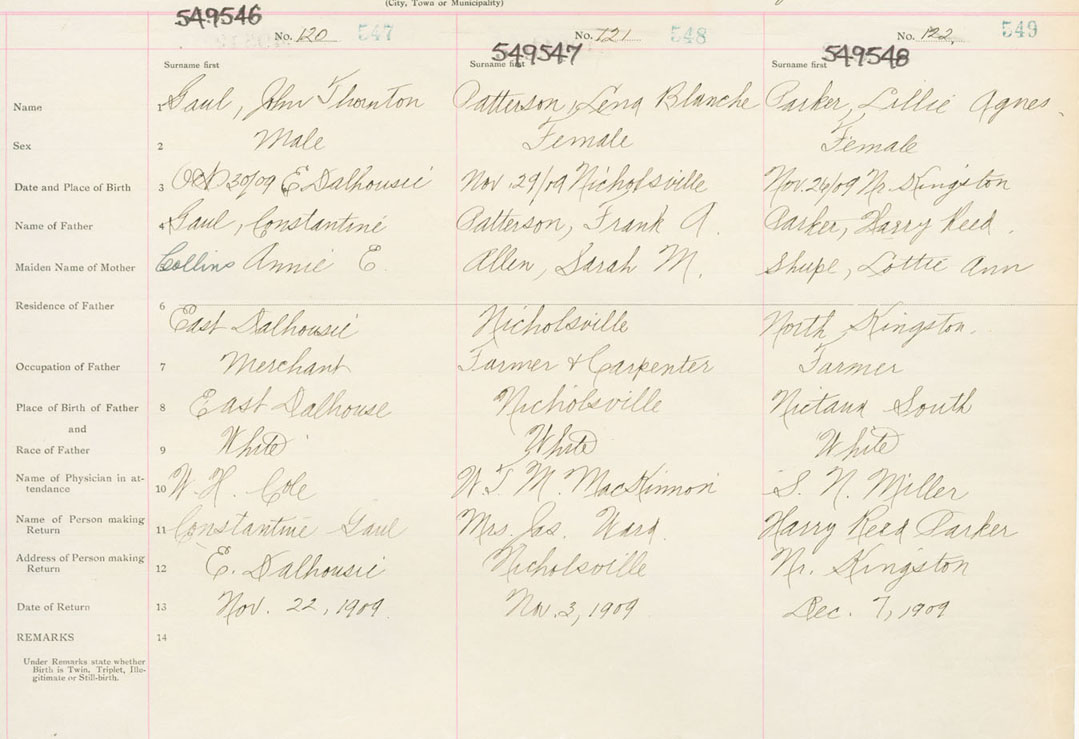 (City, Town or Municipality)
549546 549547 549548
No. 120 547 No. 121 548 No. 122. 549
Surname first Surname first Surname first
Name 1 Gaul, John Thornton Patterson, Lena Blanche Parker, Lillie Agnes.
Sex 2 Male Female Female
Date and Place of Birth 3 Oct 30/09 E Dalhousie Nov. 29/09 Nicholsville Nov. 26/09 Nr. Kingston
Name of Father 4 Gaul, Constantine Patterson, Frank A. Parker, Harry Reed.
Maiden Name of Mother Collins Annie E. Allen, Sarah M. Shupe, Lottie Ann
Residence of Father 6 East Dalhousie Nicholsville North Kingston.
Occupation of Father 7 Merchant Farmer & Carpenter Farmer
Place of Birth of Father 8 East Dalhouse Nicholsville Nictaux South
and
Race of Father 9 White White White
Name of Physician in at-
tendance 10 W. H. Cole W. T. M. MacKinnon S. N. Miller
Name of Person making
Return 11 Constantine Gaul Mrs. Jas. Ward. Harry Reed Parker
Address of Person making
Return 12 E. Dalhousie Nicholsville Nr. Kingston
Date of Return 13 Nov. 22, 1909 Nov. 3, 1909 Dec. 7, 1909
REMARKS 14
Under Remarks state whether
Birth is Twin, Triplet, Ille-
gitimate or Still-birth.